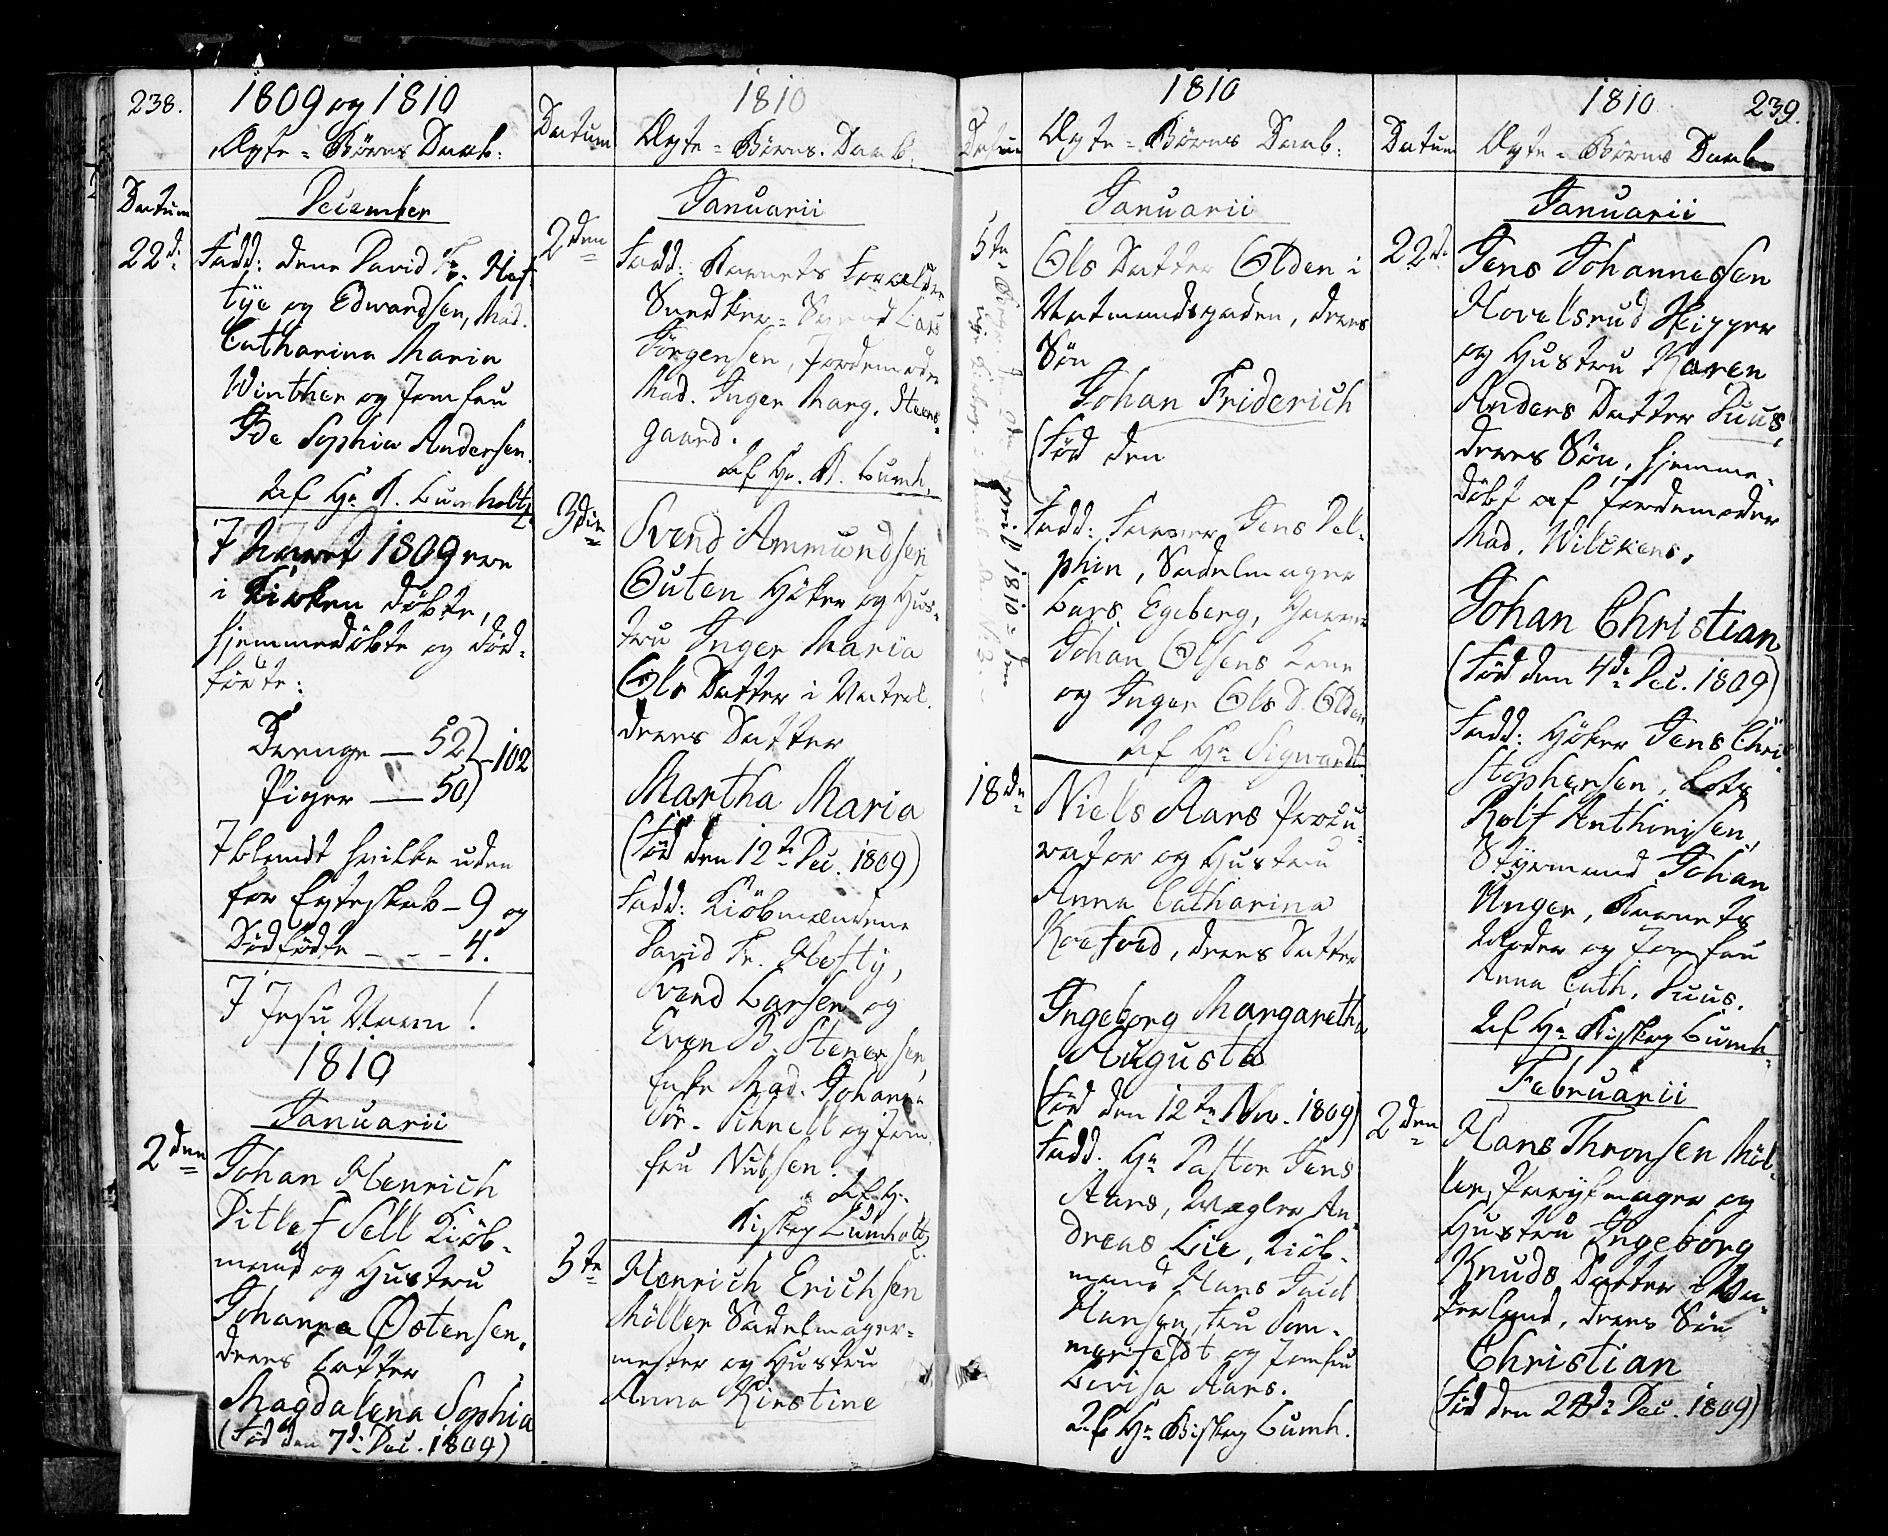 238.
1809 og 1810
Ægte-Børns Daab:
Datum
December
22d:
Fadd: dene David Fr. Hef-
tÿe og Edwardsen, Mad.
Catharina Maria
Winther og Jomfru
Ide Sophia Andersen.
Af Hr B. Lumholtz
I Aaret 1809 ere
i Kirken døbte,
hjemmedøbte og død-
fødte:
Drenge — 52
Piger — 50
102
Iblandt hvilke uden
for Egteskab – 9 og
Dødfødte - - - 4.
I Jesu Navn!
1810
Januarii
2den
Johan Henrich
Ditlef Sell Kiöb-
mand og Hustru
Johanna Østensen,
deres Datter
Magdalena Sophia
(Fød den 7de Dec. 1809)
Datum
1810
Ægte-Børns Daab:
Januarii
2den
Fadd: Barnets Forældre
Snedker-Svend Lars
Jörgensen, Jordemoder
Mad. Inger Marg. Steens-
gaard.
Af Hr. B. Lumh.
3die
Svend Ammundsen
Outen Höker og Hus-
tru Inger Maria
Ols Datter i Vaterl.
deres Datter
Martha Maria
(Fød den 12te Dec. 1809)
Fadd: Kiöbmændene
David Fr. Hefty,
Svend Larsen og
Even B. Stenersen,
Enke Mad. Johanna
Sör. Schnell og Jom-
fru Nubsen.
Af Hr.
Biskop Lumholtz
5te
Henrich Erichsen
Möller Sadelmager-
mester og Hustru
Anna Kirstine
Datum
1810
Ægte-Børns Daab:
Januarii
5te
Ols Datter Olden i
Vatmandsgaden, deres
Søn
Johan Friderich
(Fød den
Fadd: Farver Jens Del-
phin, Sadelmager
Lars Egeberg,
Johan Olsens Kone
og Inger Ols D. Olden
Af Hr Sigwardt
April 1810
18de
Niels Aars Procu-
rator og Hustru
Anna Catharina
deres Datter
Ingeborg Margaretha
Augusta
(Fød den 12te Nov. 1809)
Fadd. Hr Pastor Jens
Aars, Mægler An-
dreas Lie, Kiöb-
mand Hans
Hansen, Fru Som-
merfeldt og Jomfru
Lovisa Aars.
Af Hr Biskop Lumh.
Datum
1810
239.
Ægte-Børns Daab
Januarii
22d:
Jens Johannesen
Hovelsrud Skipper
og Hustru Karen
Anders Datter Duus,
deres Søn, hjemme-
döbt af Jordemoder
Mad. Wilckens,
Johan Christian
(Fød den 4de Dec. 1809)
Fadd: Höker Jens Chri-
stophersen, Lods
Rolf Anthonisen,
Styrmand Johan
Unger, Barnets
Moder og Jomfru
Anna Cath. Duus.
Af Hr Biskop Lumh.
Februarii
2den
Hans Thronsen Möl-
ler, Parykmager og
Hustru Ingeborg
Knuds Datter i Va-
terland, deres Søn
Christian
(Fød den 28de Dec. 1809)